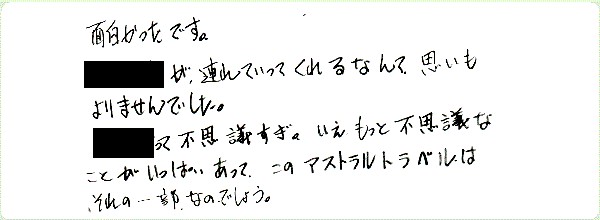 面白かったです。
が、連れていってくれるなんて、思いも
よりませんでした。
って不思議すぎ。いえもっと不思議な
ことがいっぱいあって、このアストラルトラベルは
それの一部なのでしょう。